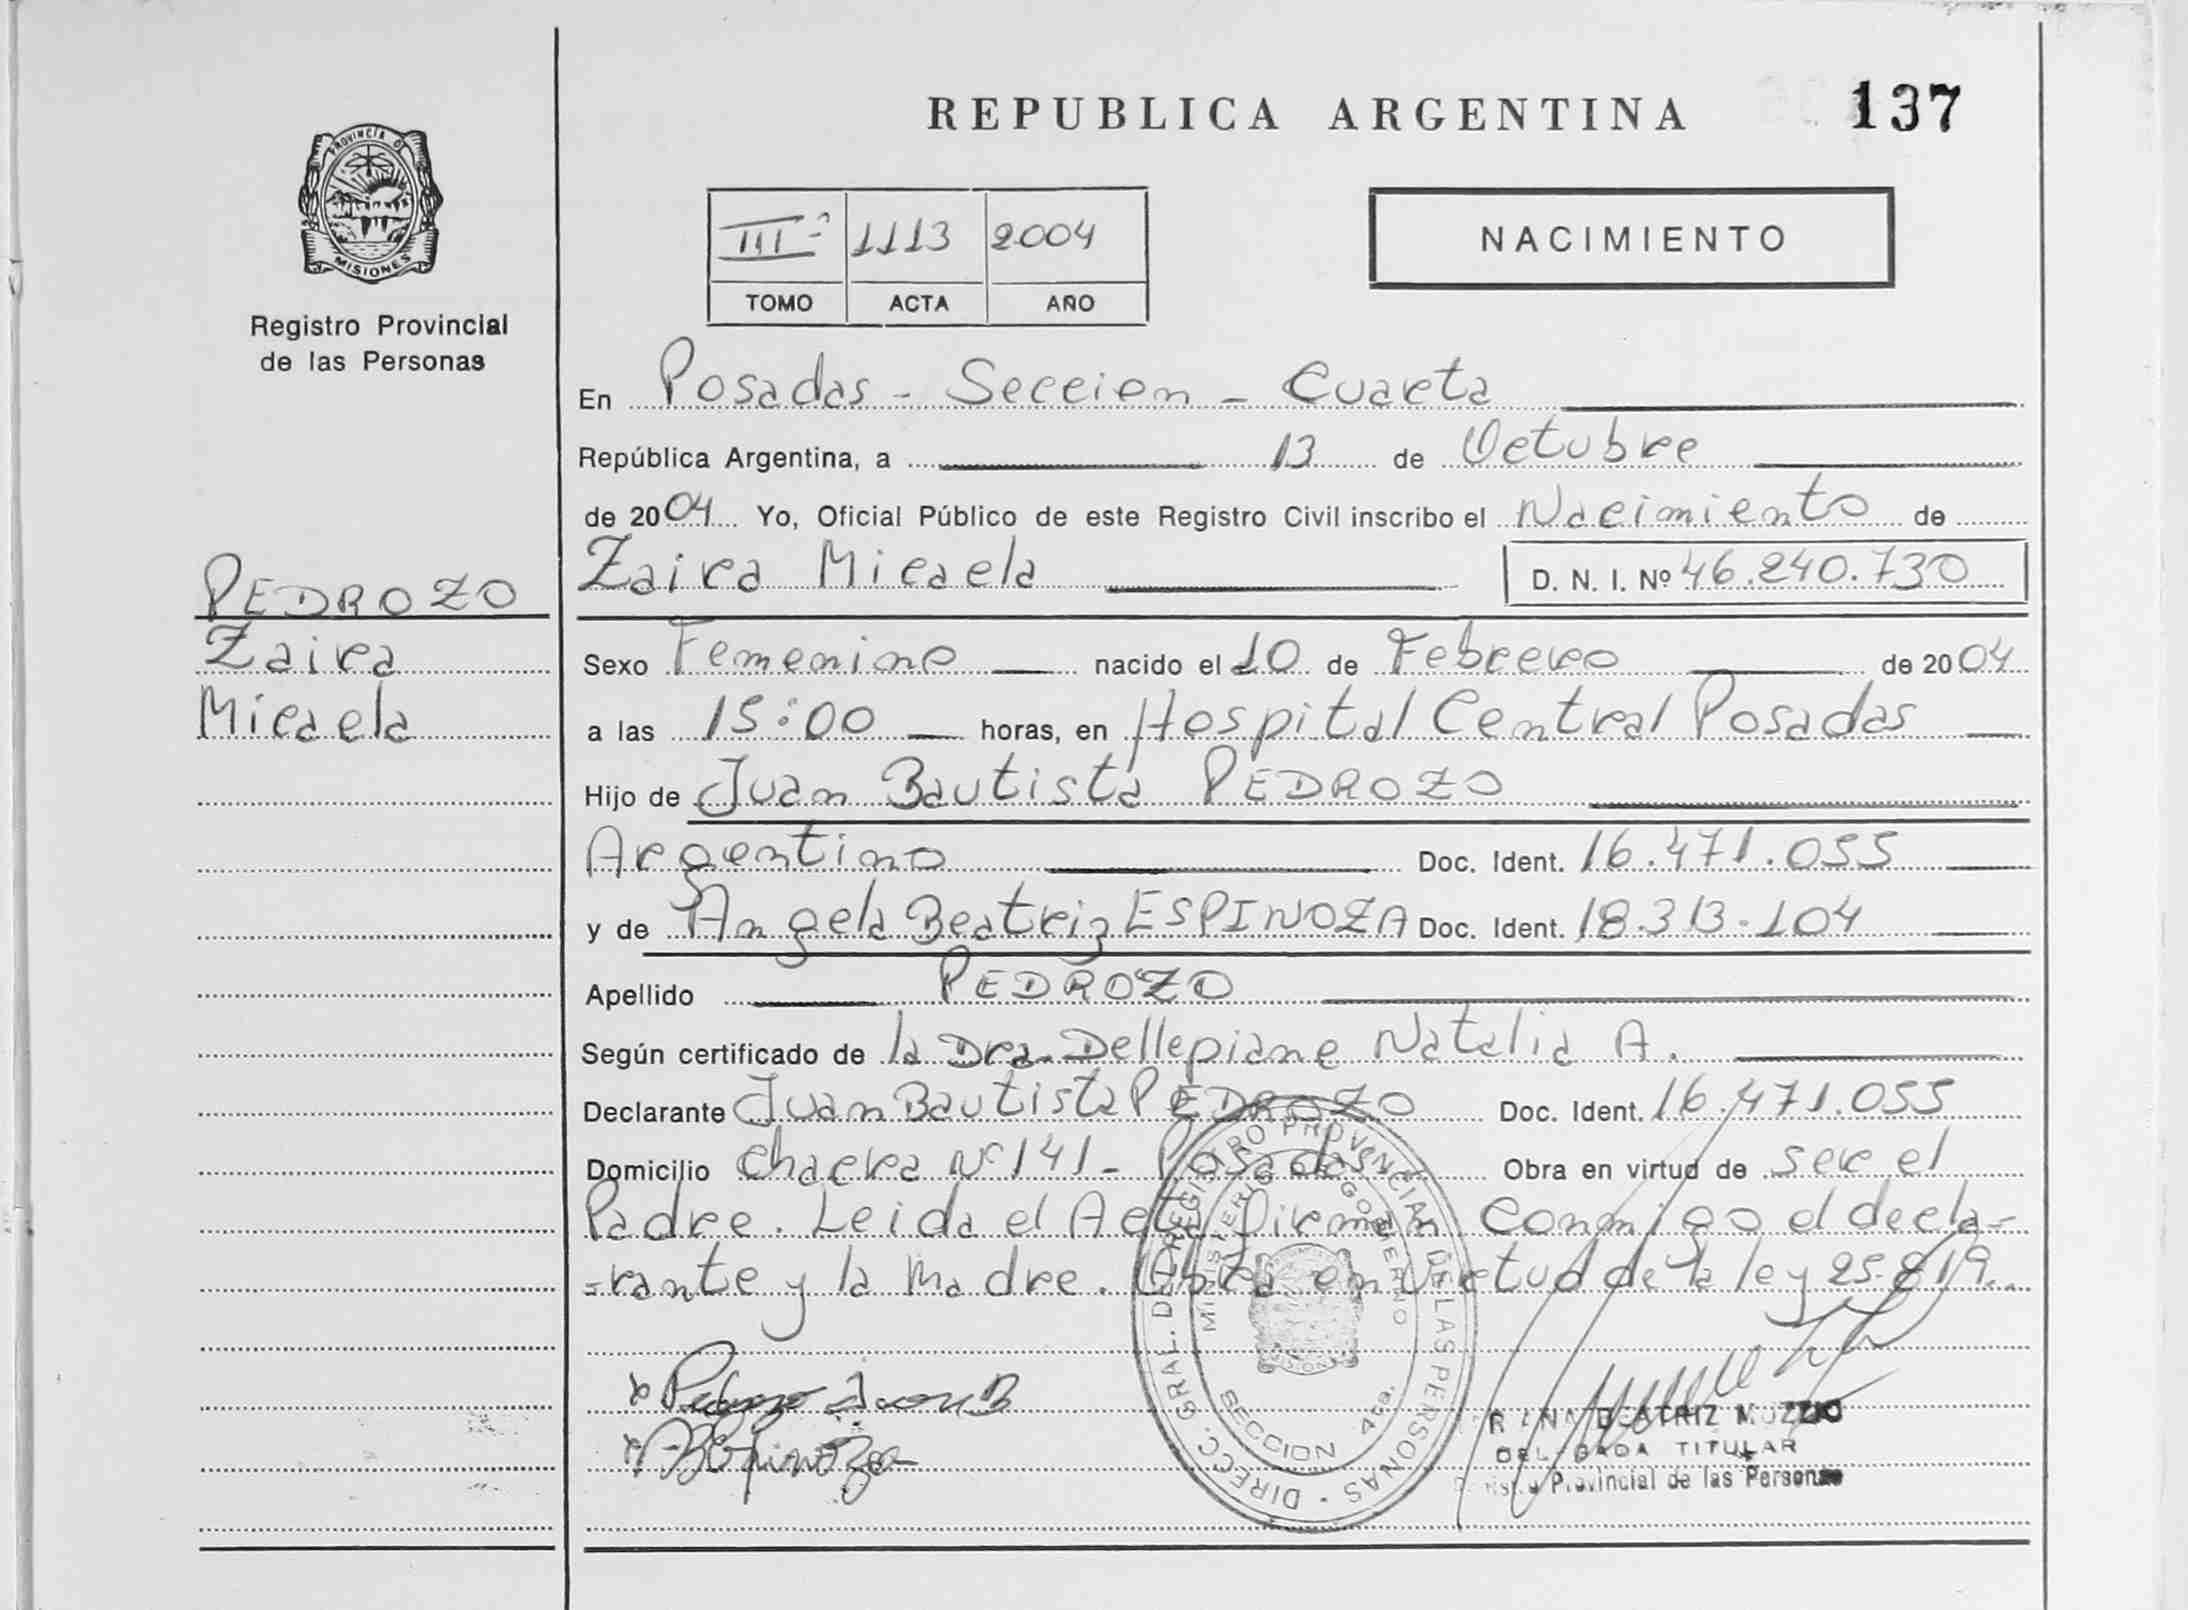 REPUBLICA ARGENTINA
137
PROVINCIA D
MISIONES
Registro Provincial
de las Personas
III 1113 2004
TOMO ACTA AÑO
NACIMIENTO
En Posadas - Seccion - Cuarta
República Argentina, a 13 de Octubre
de 2004 Yo, Oficial Público de este Registro Civil inscribo el Nacimiento de
Zaira Micaela D. N. I. Nº 46.240.730
PEDROZO
Zaira
Micaela
Sexo Femenino nacido el 10 de Febrero de 2004
a las 15:00 horas, en Hospital Central Posadas
Hijo de Juan Bautista PEDROZO
Argentino Doc. Ident. 16.471.055
y de Angela Beatriz ESPINOZA Doc. Ident. 18.313.104
Apellido PEDROZO
Según certificado de la Dra. Dellepiane Natalia A.
Declarante Juan Bautista PEDROZO Doc. Ident. 16.471.055
Domicilio Chacra Nº 141 - Posadas Obra en virtud de ser el
Padre. Leida el Acta Firman Conmigo el decla-
-rante y la Madre. en Virtud de la ley 25.819.
Pedrozo Juan B
ABEspinoza
DIREC. GRAL. DEL REGISTRO PROVINCIAL DE LAS PERSONAS
MINISTERIO GOBIERNO
MISIONES
SECCION 4ta.
BEATRIZ MUZZIO
DELEGADA TITULAR
Provincial de las Personas